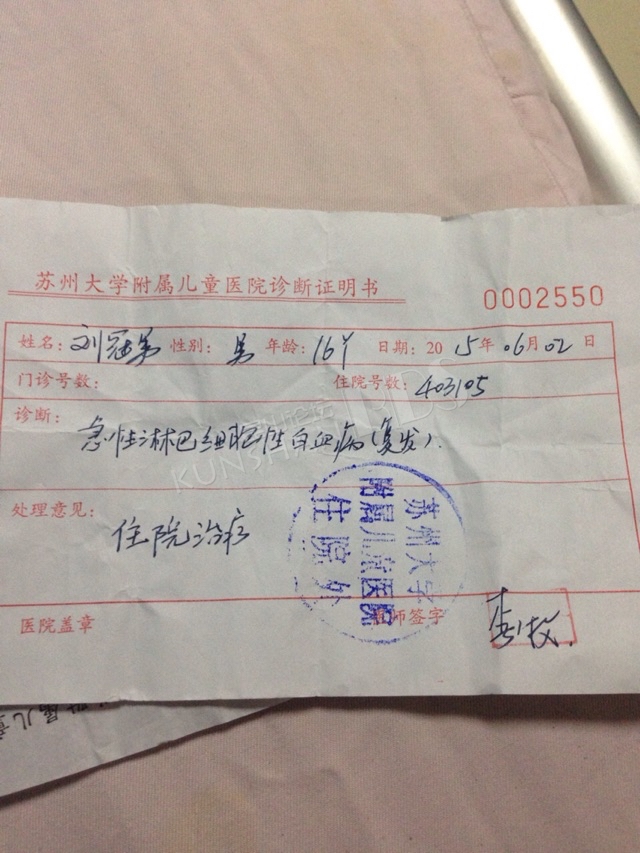 苏州大学附属儿童医院诊断证明书
0002550
姓名: 刘冠第 性别: 男 年龄: 16Y 日期: 2015年06月02日
门诊号数: 住院号数: 403105
诊断:
急性淋巴细胞性白血病(复发).
处理意见:
住院治疗
苏州大学
附属儿童医院
住院外
医院盖章 医师签字
KUNSHAN